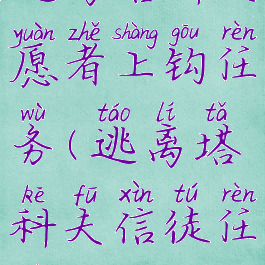 yuàn zhě shàng gōu rèn
愿者上钩任
wù táo lí tǎ
务(逃离塔
kē fū xìn tú rèn
科夫信徒任